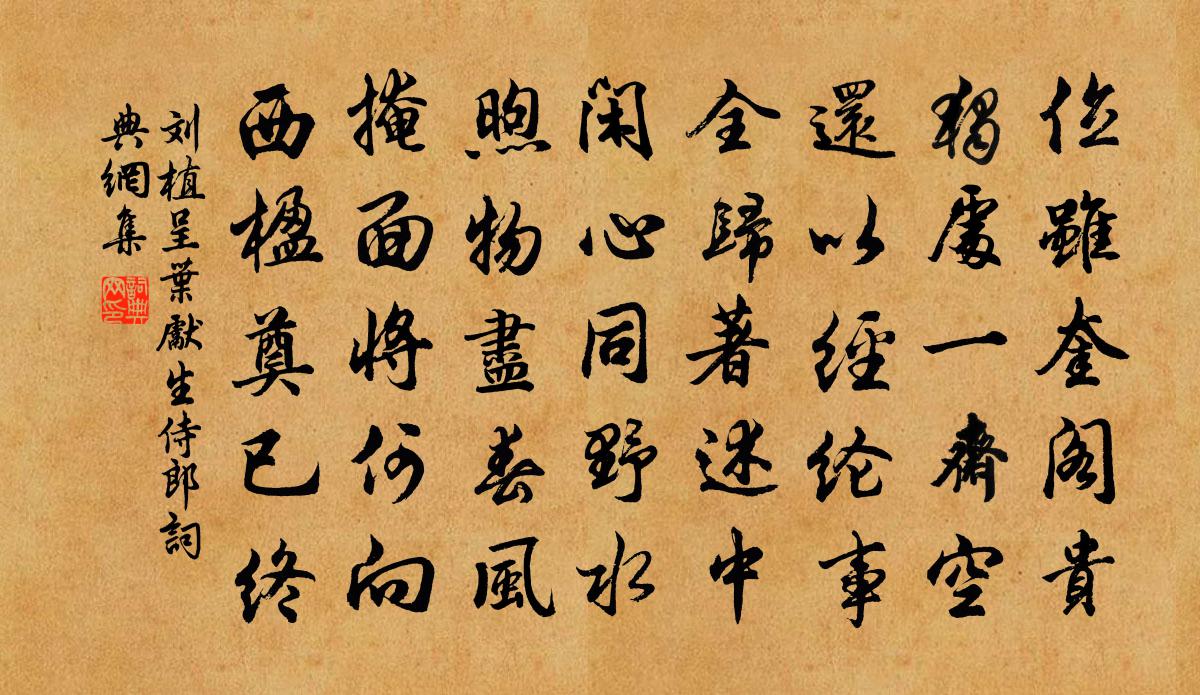 位雖奎閣貴
獨處一齋空
還以經纶事
全歸著述中
閑心同野水
煦物盡春風
掩面將何向
西楹奠已终
刘植呈葉獻生侍郎詞
典網集
詞典
网印